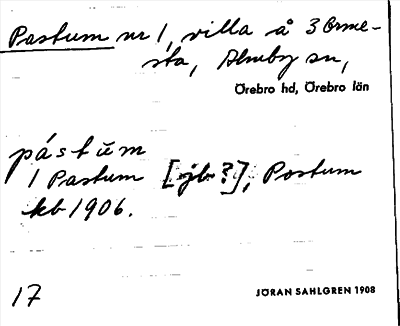 Pastum nr 1, villa å 3 Orme-
sta, Almby sn,
Örebro hd, Örebro län
pástum
1 Pastum [jb?], Postum
kb 1906.
17 JÖRAN SAHLGREN 1908